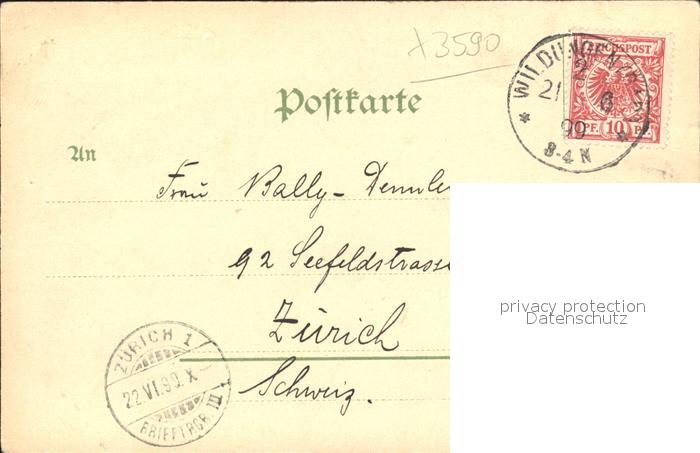 x3590
REICHSPOST
10 PF.
WILDUNGEN
21 6
99
3-4 N
Postkarte
An
Frau Bally-Dennler
92 Seefeldstrasse
Zürich
Schweiz.
privacy protection
Datenschutz
ZÜRICH 1
22.VI.99.X-
BRIEFTRGR. III